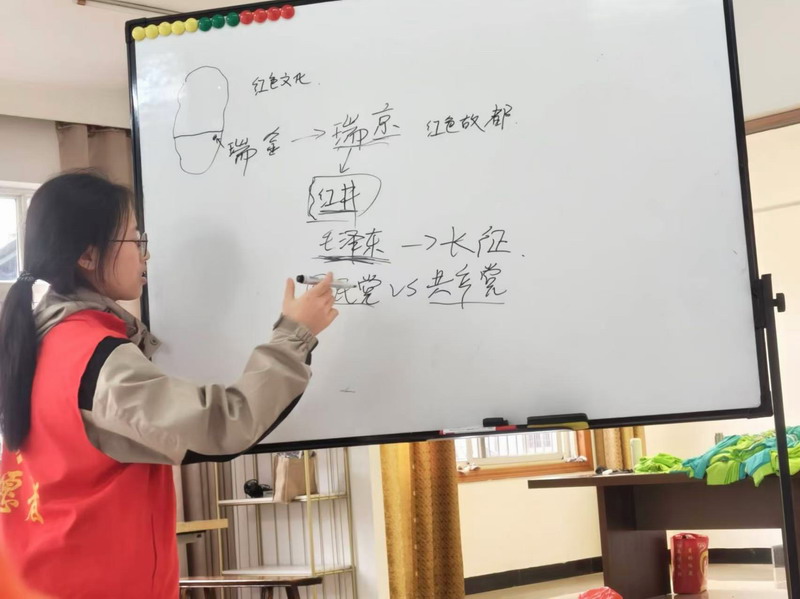 红色文化
瑞金 → 瑞京 红色故都
红井
毛泽东 → 长征.
民党 VS 共产党
愿者